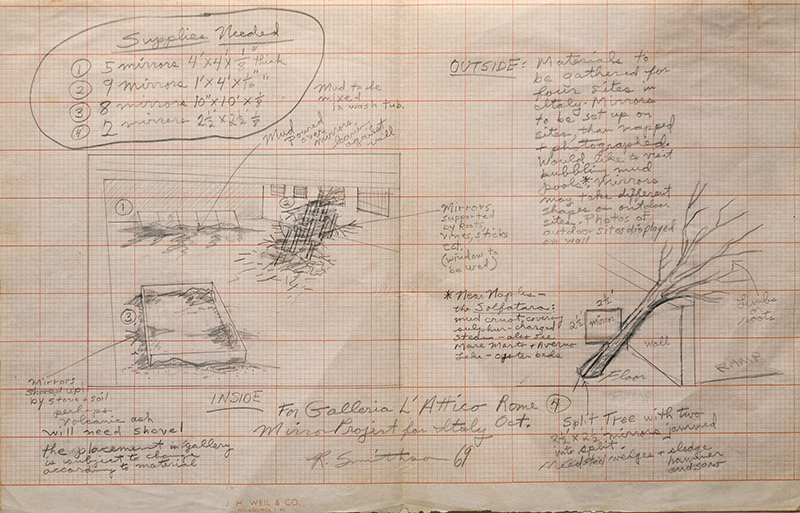 Supplies Needed
① 5 mirrors 4' x 4' x 1/8" thick
② 9 mirrors 1' x 4' x
③ 8 mirrors 10" x 10' x 1/8
④ 2 mirrors 2½ x 2½ 1/8
Mud to be
mixed
in wash tub.
Mud
Poured
over
mirrors,
leaning
against
wall
①
②
Mirrors
supported
by Roots,
vines, sticks
ect.
(window to
be used)
③
Mirrors
shored up
by stone + soil
perhaps
volcanic ash
will need shovel
the placement in gallery
is subject to change
according to material
INSIDE
OUTSIDE: Materials to
be gathered for
four sites in
Italy. Mirrors
to be set up on
sites, than mapped
+ photographed.
Would like to visit
bubbling mud
pools* Mirrors
may take different
shapes on outdoor
sites. Photos of
outdoor sites displayed
on wall
* Near Naples -
the Solfatara:
mud crust, covering
sulphur-charged
steam - also see
Mare Morto + Averno
Lake - oyster beds
2½'
2½'
mirror
wall
Floor
Limbs
or
roots
RAMP
For Galleria L'Attico Rome
Mirror Project for Italy Oct.
R. Smithson 69
④
Split Tree with two
2½ x 2½' mirrors jammed
into split.
Need steel wedges + sledge
hammer
and saw
J. H. WEIL & CO.